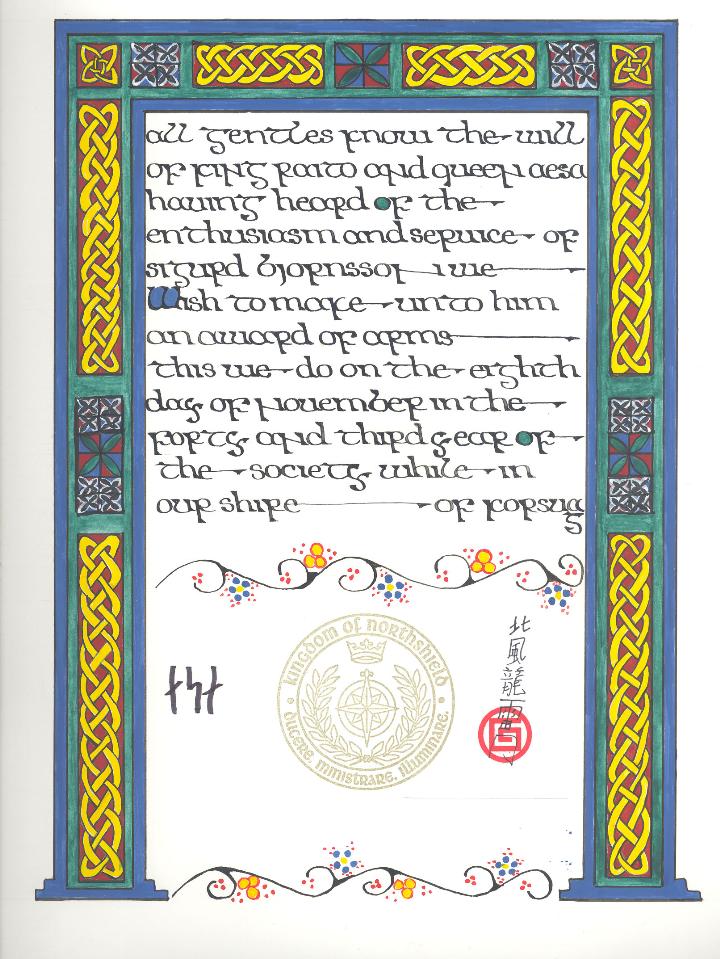 all gentles know the will
of king raito and queen aesa
having heard of the
enthusiasm and service of
sigurd bjornsson we
Wish to make unto him
an award of arms
this we do on the eighth
day of november in the
forty and third year of
the society while in
our shire of korsvag
KINGDOM OF NORTHSHIELD
DUCERE, MINISTRARE, ILLUMINARE.
ᚾᛋᚾ
北風龍